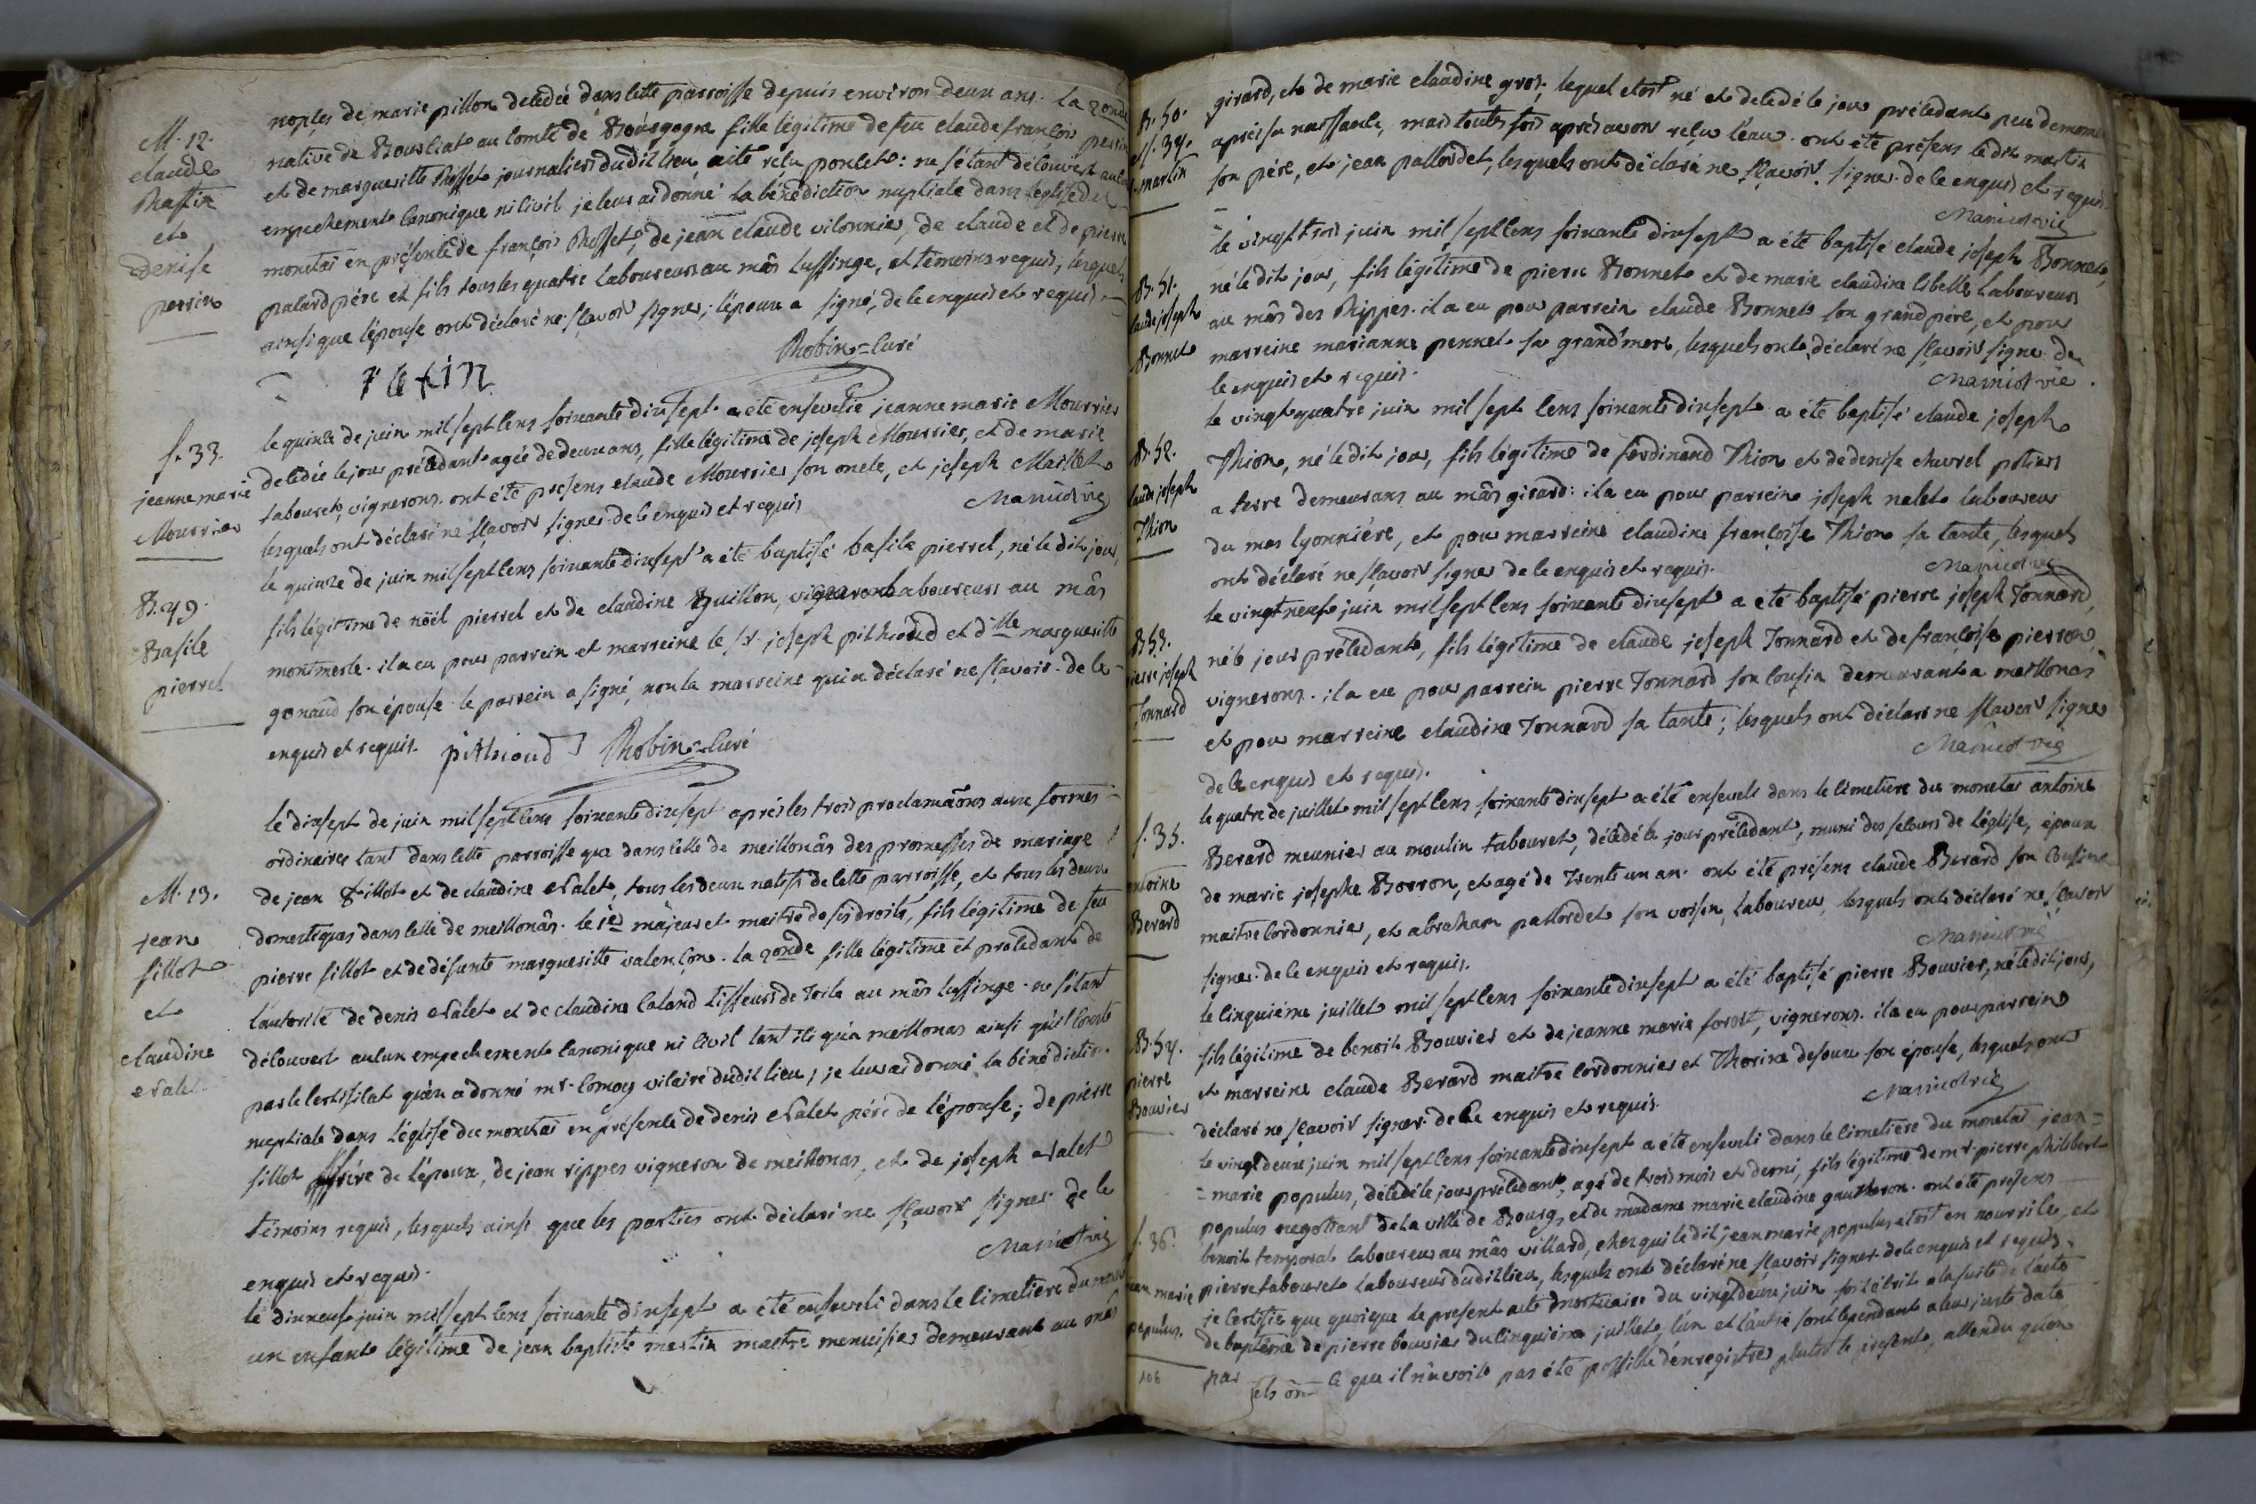 M. 12.
claude
Rassin
et
denise
perrin
noples de marie pillon decedée dans cette parroisse depuis environ deux ans. la 2onde
native de Boussiat au comté de Bourgogne fille légitime de feu claude françois perrin
et de marguerite Rosset journaliers dudit lieu a été relu pontet: ne s'étant découvert aucun
empechement canonique ni civil je leur ai donné la bénédiction nuptiale dans l'église du
monetai en présence de françois Rosset, de jean claude vilonnier, de claude et de pierre
palard père et fils tous les quatre laboureurs au mâs lussinge, et témoins requis, lesquels
ainsi que l'épouse ont déclaré ne sçavoir signer; l'époux a signé, de ce enquis et requis
Robin-curé
f. 33.
jeanne marie
Mourrier
le quinze de juin mil sept cens soixante dixsept a été ensevelie jeanne marie Mourrier
décédée le jour précédant agée de deux ans, fille légitime de joseph Mourrier, et de marie
tabouret, vignerons. ont été présens claude Mourrier son oncle, et joseph Maillet
lesquels ont déclaré ne sçavoir signer de ce enquis et requis
Maniot vic
B. 49.
Basile
pierrel
le quinze de juin mil sept cens soixante dixsept a été baptisé basile pierrel, né le dit jour,
fils légitime de noël pierrel et de claudine Guillon, laboureurs au mâs
montmerle. il a eu pour parrein et marreine le sr joseph pithioud et dlle marguerite
gonaud son épouse le parrein a signé, non la marreine qui a déclaré ne sçavoir. de ce
enquis et requis. pithioud Robin-curé
M. 13.
jean
fillot
et
claudine
Valet
le dixsept de juin mil sept cens soixante dixsept après les trois proclamaõns aux formes
ordinaires tant dans cette parroisse que dans celle de meillonâs des promesses de mariage
de jean fillot et de claudine Valet, tous les deux natifs de cette parroisse, et tous les deux
domestiques dans celle de meillonâs. le 1er majeur et maitre de ses droits, fils légitime de feu
pierre fillot et de défunte marguerite valençon. la 2onde fille légitime et procedant de
l'autorité de denis Valet et de claudine Caland tisseurs de toile au mâs lussinge. ne s'étant
découvert aucun empechement canonique ni civil tant ici qu'à meillonas ainsi qu'il conste
par le certificat qu'en a donné mr. Comoy vicaire dudit lieu; je leur ai donné la bénédiction
nuptiale dans l'église du monetai en présence de denis Valet père de l'épouse; de pierre
fillot frère de l'époux, de jean rippes vigneron de meillonas, et de joseph Valet
témoins requis, lesquels ainsi que les parties ont déclaré ne sçavoir signer de ce
enquis et requis.
Maniot vic
le dixneuf juin mil sept cens soixante dixsept a été enseveli dans le cimetière du
un enfant légitime de jean baptiste martin maitre menuisier demeurant au mâs
B. 50.
f. 34.
martin
girard, et de marie claudine gros; lequel étoit né et décédé le jour précédant peu de
après sa naissance, mais toutefois après avoir relu l'eau. ont été présens le dit martin
son père, et jean pallordet, lesquels ont déclaré ne sçavoir signer. de ce enquis et requis.
Maniot vic
B. 51.
claude joseph
Bonnet
le vingt trois juin mil sept cens soixante dixsept a été baptisé claude joseph Bonnet,
né le dit jour, fils légitime de pierre Bonnet et de marie claudine Cibelle laboureurs
au mâs des Rippes. il a eu pour parrein claude Bonnet son grand père, et pour
marreine marianne pennet sa grand'mere, lesquels ont déclaré ne sçavoir signer de
ce enquis et requis.
Maniot vic.
B. 52.
claude joseph
Thion
le vingt quatre juin mil sept cens soixante dixsept a été baptisé claude joseph
Thion, né le dit jour, fils légitime de ferdinand Thion et de denise chevrel potiers
a terre demeurans au mâs girard: il a eu pour parrein joseph nelet laboureur
du mas lyonnière, et pour marreine claudine françoise Thion sa tante, lesquels
ont déclaré ne sçavoir signer de ce enquis et requis.
Maniot vic
B. 53.
pierre joseph
Tonnard
le vingt neuf juin mil sept cens soixante dixsept a été baptisé pierre joseph Tonnard,
né le jour précédant, fils légitime de claude joseph Tonnard et de françoise pierron,
vignerons. il a eu pour parrein pierre Tonnard son cousin demeurant a meillonas
et pour marreine claudine Tonnard sa tante; lesquels ont déclaré ne sçavoir signer
de ce enquis et requis.
Maniot vic
f. 35.
antoine
Berard
le quatre de juillet mil sept cens soixante dixsept a été enseveli dans le cimetière du monetai antoine
Berard meunier au moulin tabouret, décédé le jour précédant, muni des secours de l'église, époux
de marie josephe Borron, et agé de trente un an. ont été présens claude Berard son cousin
maitre cordonnier, et abraham pallordet son voisin laboureur, lesquels ont déclaré ne sçavoir
signer. de ce enquis et requis.
Maniot vic
B. 54.
pierre
Bouvier
le cinquième juillet mil sept cens soixante dixsept a été baptisé pierre Bouvier, né le dit jour,
fils légitime de benoit Bouvier et de jeanne marie forest, vignerons. il a eu pour parrein
et marreine claude Berard maitre cordonnier et Thorine son épouse, lesquels ont
déclaré ne sçavoir signer. de ce enquis et requis.
Maniot vic
f. 36.
jean marie
populus.
le vingt deux juin mil sept cens soixante dixsept a été enseveli dans le cimetière du monetai jean=
=marie populus, décédé le jour précédant, agé de trois mois et demi, fils légitime de mr pierre philibert
populus negotiant de la ville de Bourg, et de madame marie claudine gautheron. ont été présens
benoit temporal laboureur au mâs villard, chez qui ledit jean marie populus étoit en nourrice, et
pierre tabouret laboureur dudit lieu, lesquels ont déclaré ne sçavoir signer. de ce enquis et requis.
je certifie que quoique le present acte mortuaire du vingt deux juin, soit écrit a la suite de l'acte
de baptême de pierre bouvier du cinquième juillet, l'un et l'autre sont cependant a leur juste date
par ce que il n'avoit pas été possible d'enregistrer plutot le present, attendu qu'on
106